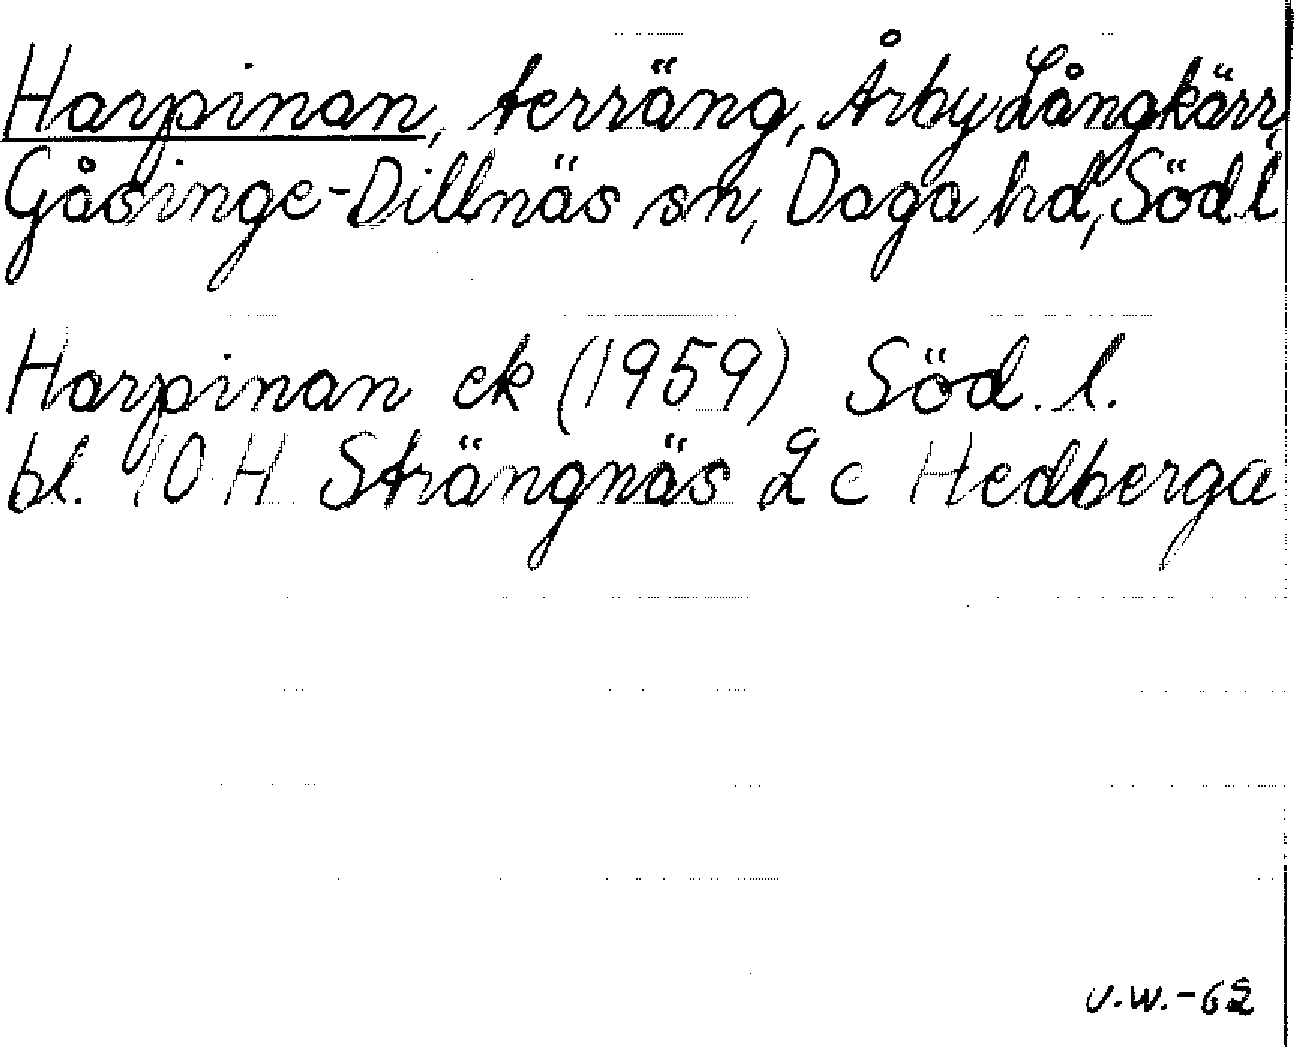 Harpinan, terräng, Årby Långkärr,
Gåsinge-Dillnäs sn, Daga hd, Söd.l
Harpinan ek (1959) Söd. l.
bl. 10 H Strängnäs 2 c Hedberga
U.W.-62